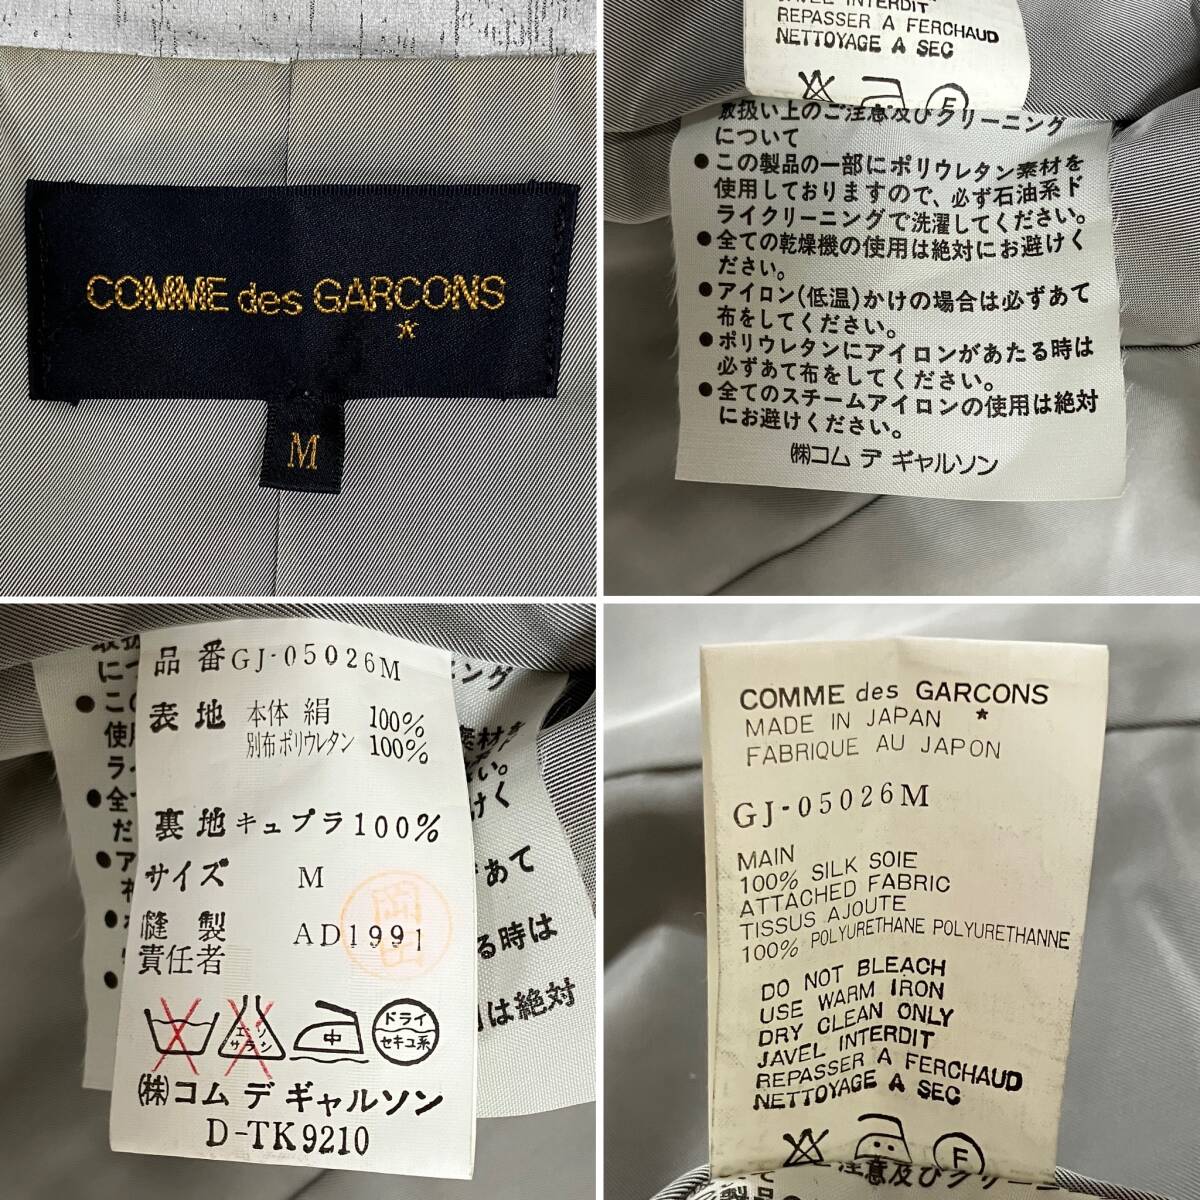 COMME des GARCONS
*
M
JAVEL INTERDIT
REPASSER A FERCHAUD
NETTOYAGE A SEC
F
取扱い上のご注意及びクリーニング
について
●この製品の一部にポリウレタン素材を
使用しておりますので、必ず石油系ド
ライクリーニングで洗濯してください。
●全ての乾燥機の使用は絶対にお避けく
ださい。
●アイロン(低温)かけの場合は必ずあて
布をしてください。
●ポリウレタンにアイロンがあたる時は
必ずあて布をしてください。
●全てのスチームアイロンの使用は絶対
にお避けください。
㈱コム デ ギャルソン
品番 GJ-05026M
表地 本体 絹 100%
別布ポリウレタン 100%
裏地 キュプラ100%
サイズ M
縫製 AD1991
責任者
岡田
エンソ
サラシ
中
ドライ
セキユ系
㈱コム デ ギャルソン
D-TK9210
につ
●この
使用
ライ
●全て
ださ
●ア
ニング
素材を
い。
けく
あて
る時は
は絶対
COMME des GARCONS
MADE IN JAPAN *
FABRIQUE AU JAPON
GJ-05026M
MAIN
100% SILK SOIE
ATTACHED FABRIC
TISSUS AJOUTE
100% POLYURETHANE POLYURETHANNE
DO NOT BLEACH
USE WARM IRON
DRY CLEAN ONLY
JAVEL INTERDIT
REPASSER A FERCHAUD
NETTOYAGE A SEC
F
ご注意及びクリーニ